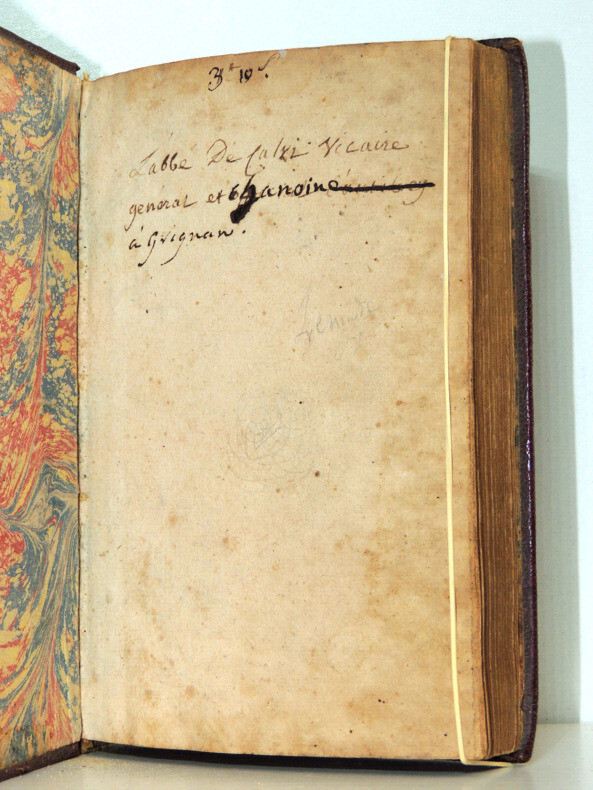 3ᵗ 10ˢ.
L'abbé De Calvi Vicaire
général et Chanoine
à Grignan.